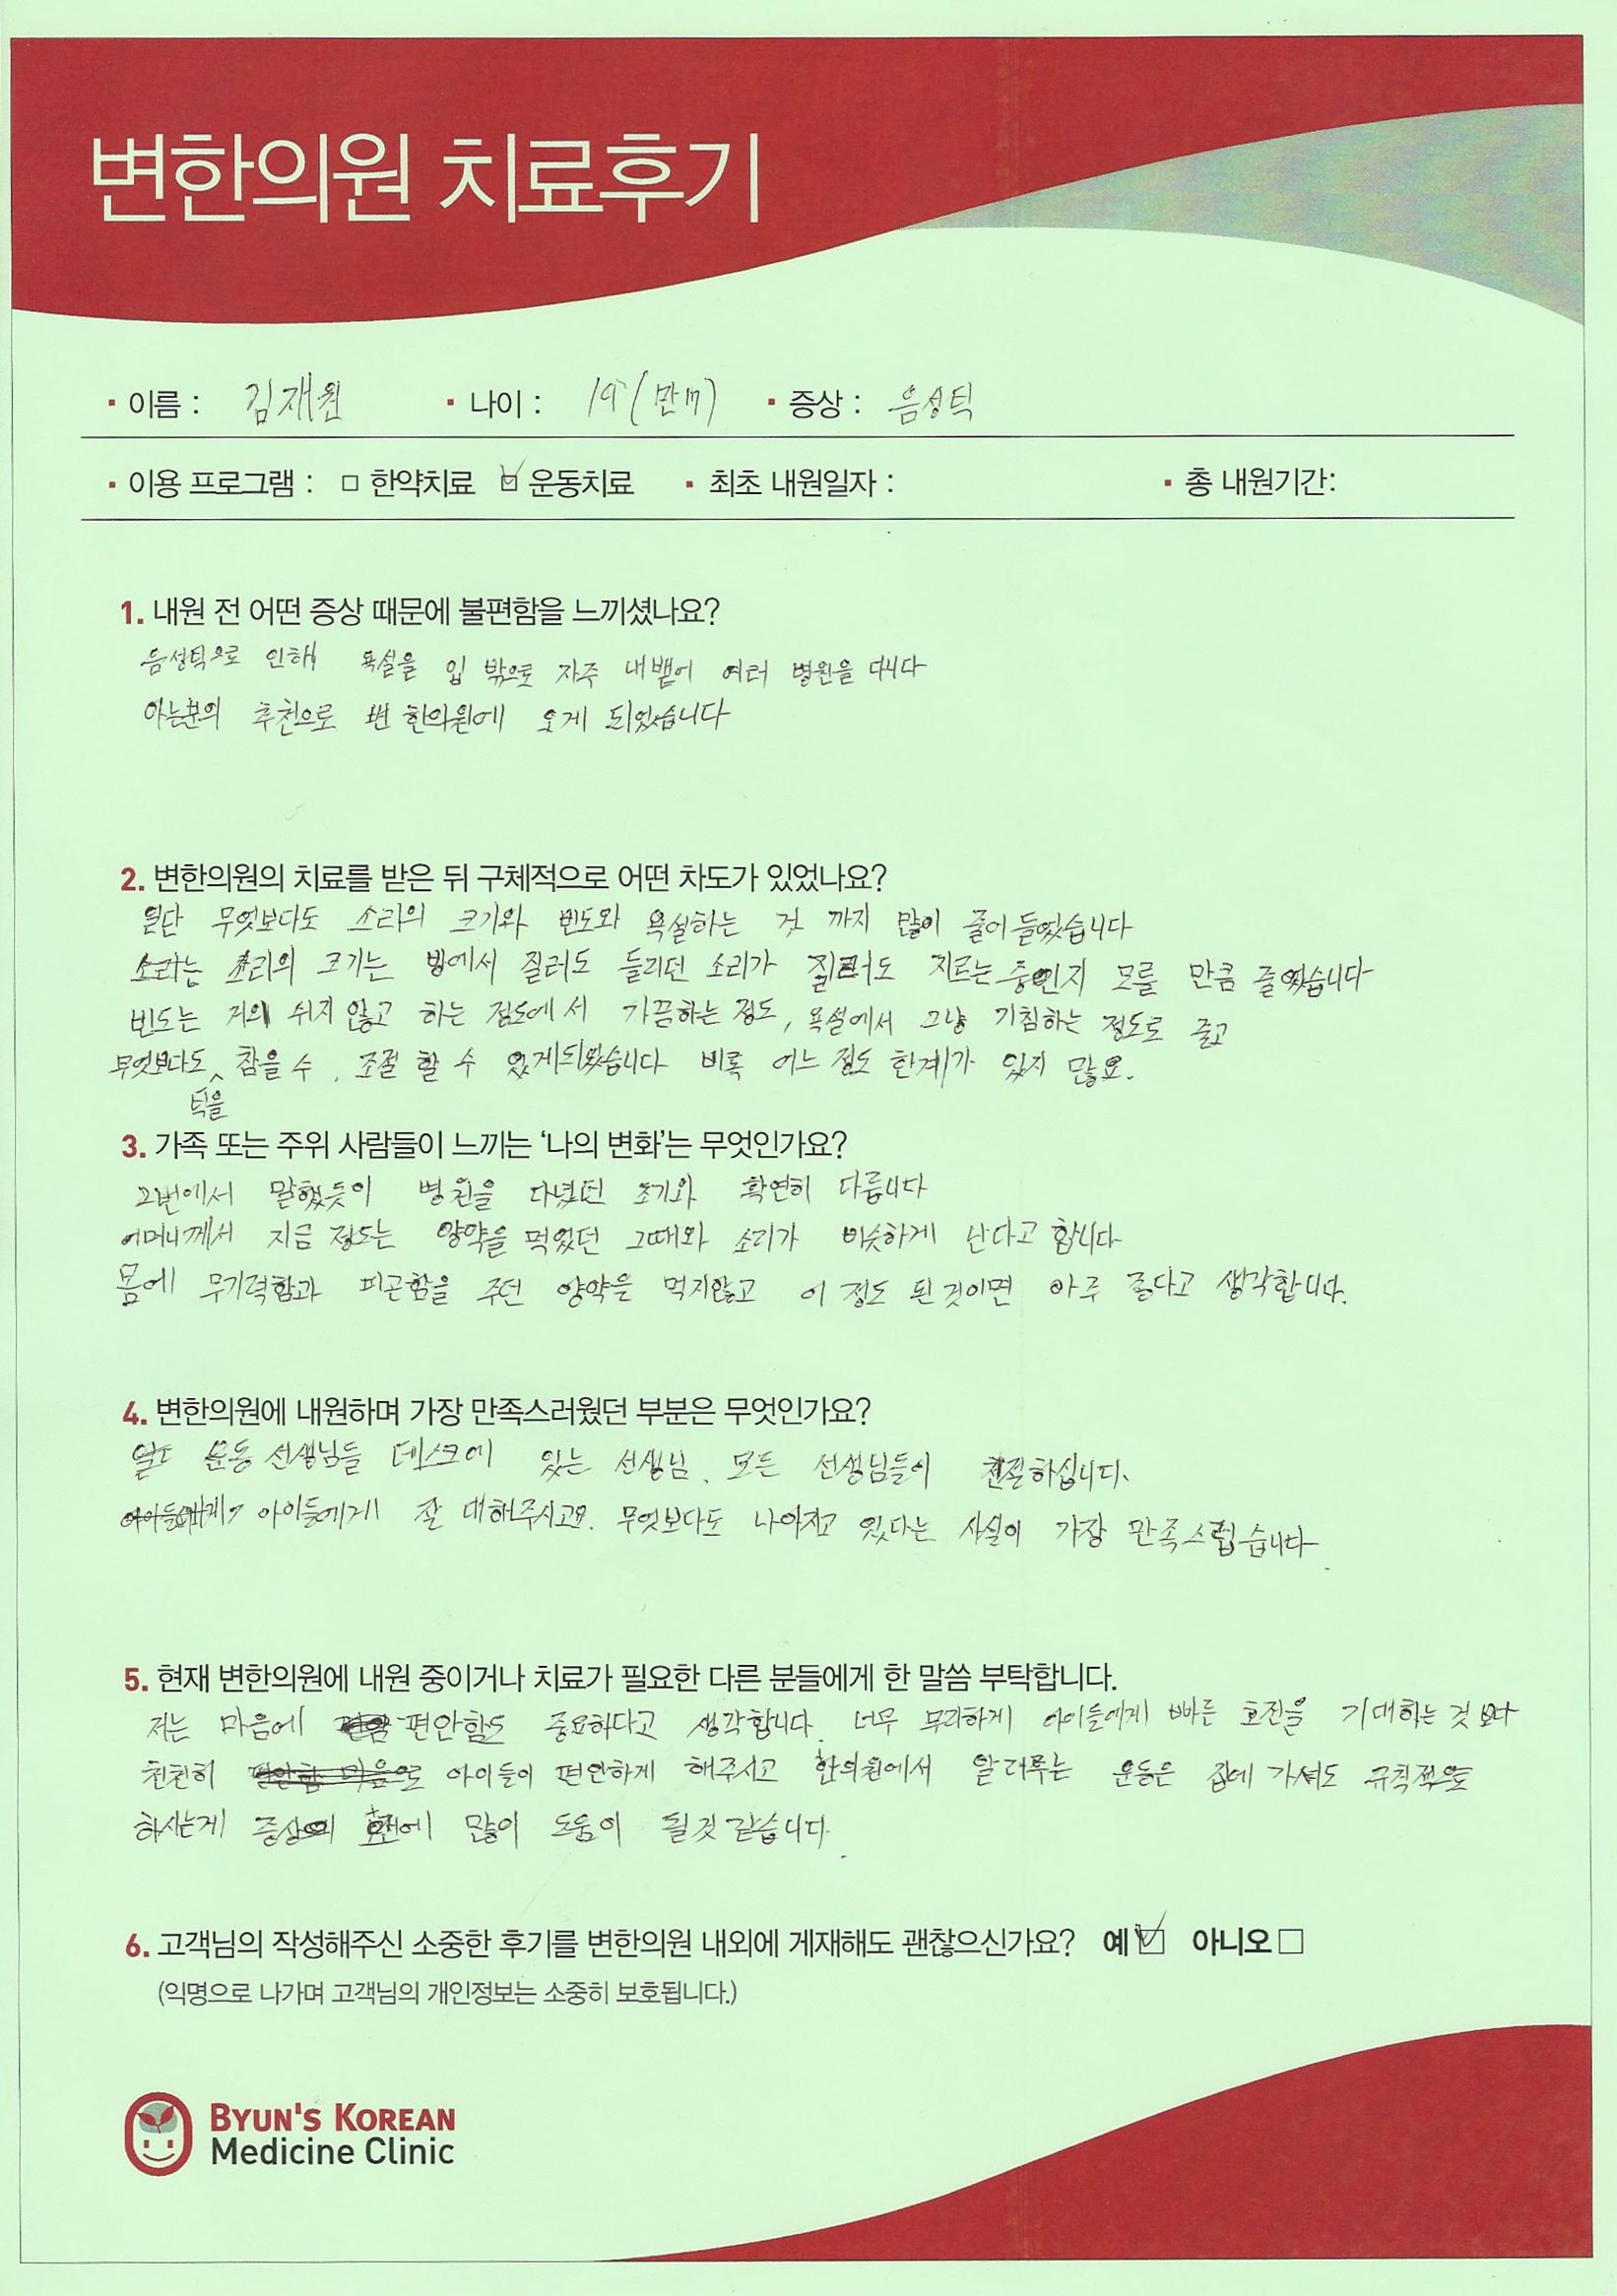 변한의원 치료후기
이름 : 김재원 나이 : 19 (만17) 증상 : 음성틱
이용 프로그램 : □ 한약치료 ☑ 운동치료 최초 내원일자 : 총 내원기간:
1. 내원 전 어떤 증상 때문에 불편함을 느끼셨나요?
음성틱으로 인해 욕설을 입 밖으로 자주 내뱉어 여러 병원을 다니다
아는분의 추천으로 변 한의원에 오게 되었습니다
2. 변한의원의 치료를 받은 뒤 구체적으로 어떤 차도가 있었나요?
일단 무엇보다도 소리의 크기와 빈도와 욕설하는 것 까지 많이 줄어들었습니다
소리의 크기는 방에서 질러도 들리던 소리가 질러도 지르는 중인지 모를 만큼 줄었습니다
빈도는 거의 쉬지 않고 하는 정도에서 가끔하는 정도, 욕설에서 그냥 기침하는 정도로 줄고
무엇보다도 틱을 참을 수, 조절 할 수 있게되었습니다 비록 어느 정도 한계가 있지 만요.
3. 가족 또는 주위 사람들이 느끼는 '나의 변화'는 무엇인가요?
2번에서 말했듯이 병원을 다녔던 초기와 확연히 다릅니다
어머니께서 지금 정도는 양약을 먹었던 그때와 소리가 비슷하게 난다고 합니다
몸에 무기력함과 피곤함을 주던 양약을 먹지않고 이 정도 된것이면 아주 좋다고 생각합니다.
4. 변한의원에 내원하며 가장 만족스러웠던 부분은 무엇인가요?
운동 선생님들 데스크에 있는 선생님. 모든 선생님들이 친절하십니다.
아이들에게 잘 대해주시고요. 무엇보다도 나아지고 있다는 사실이 가장 만족스럽습니다.
5. 현재 변한의원에 내원 중이거나 치료가 필요한 다른 분들에게 한 말씀 부탁합니다.
저는 마음에 편안함도 중요하다고 생각합니다. 너무 무리하게 아이들에게 빠른 호전을 기대하는 것 보다
천천히 아이들이 편안하게 해주시고 한의원에서 알려주는 운동은 집에 가셔도 규칙적으로
하시는게 증상의 호전에 많이 도움이 될것 같습니다.
6. 고객님의 작성해주신 소중한 후기를 변한의원 내외에 게재해도 괜찮으신가요? 예☑ 아니오□
(익명으로 나가며 고객님의 개인정보는 소중히 보호됩니다.)
BYUN'S KOREAN
Medicine Clinic